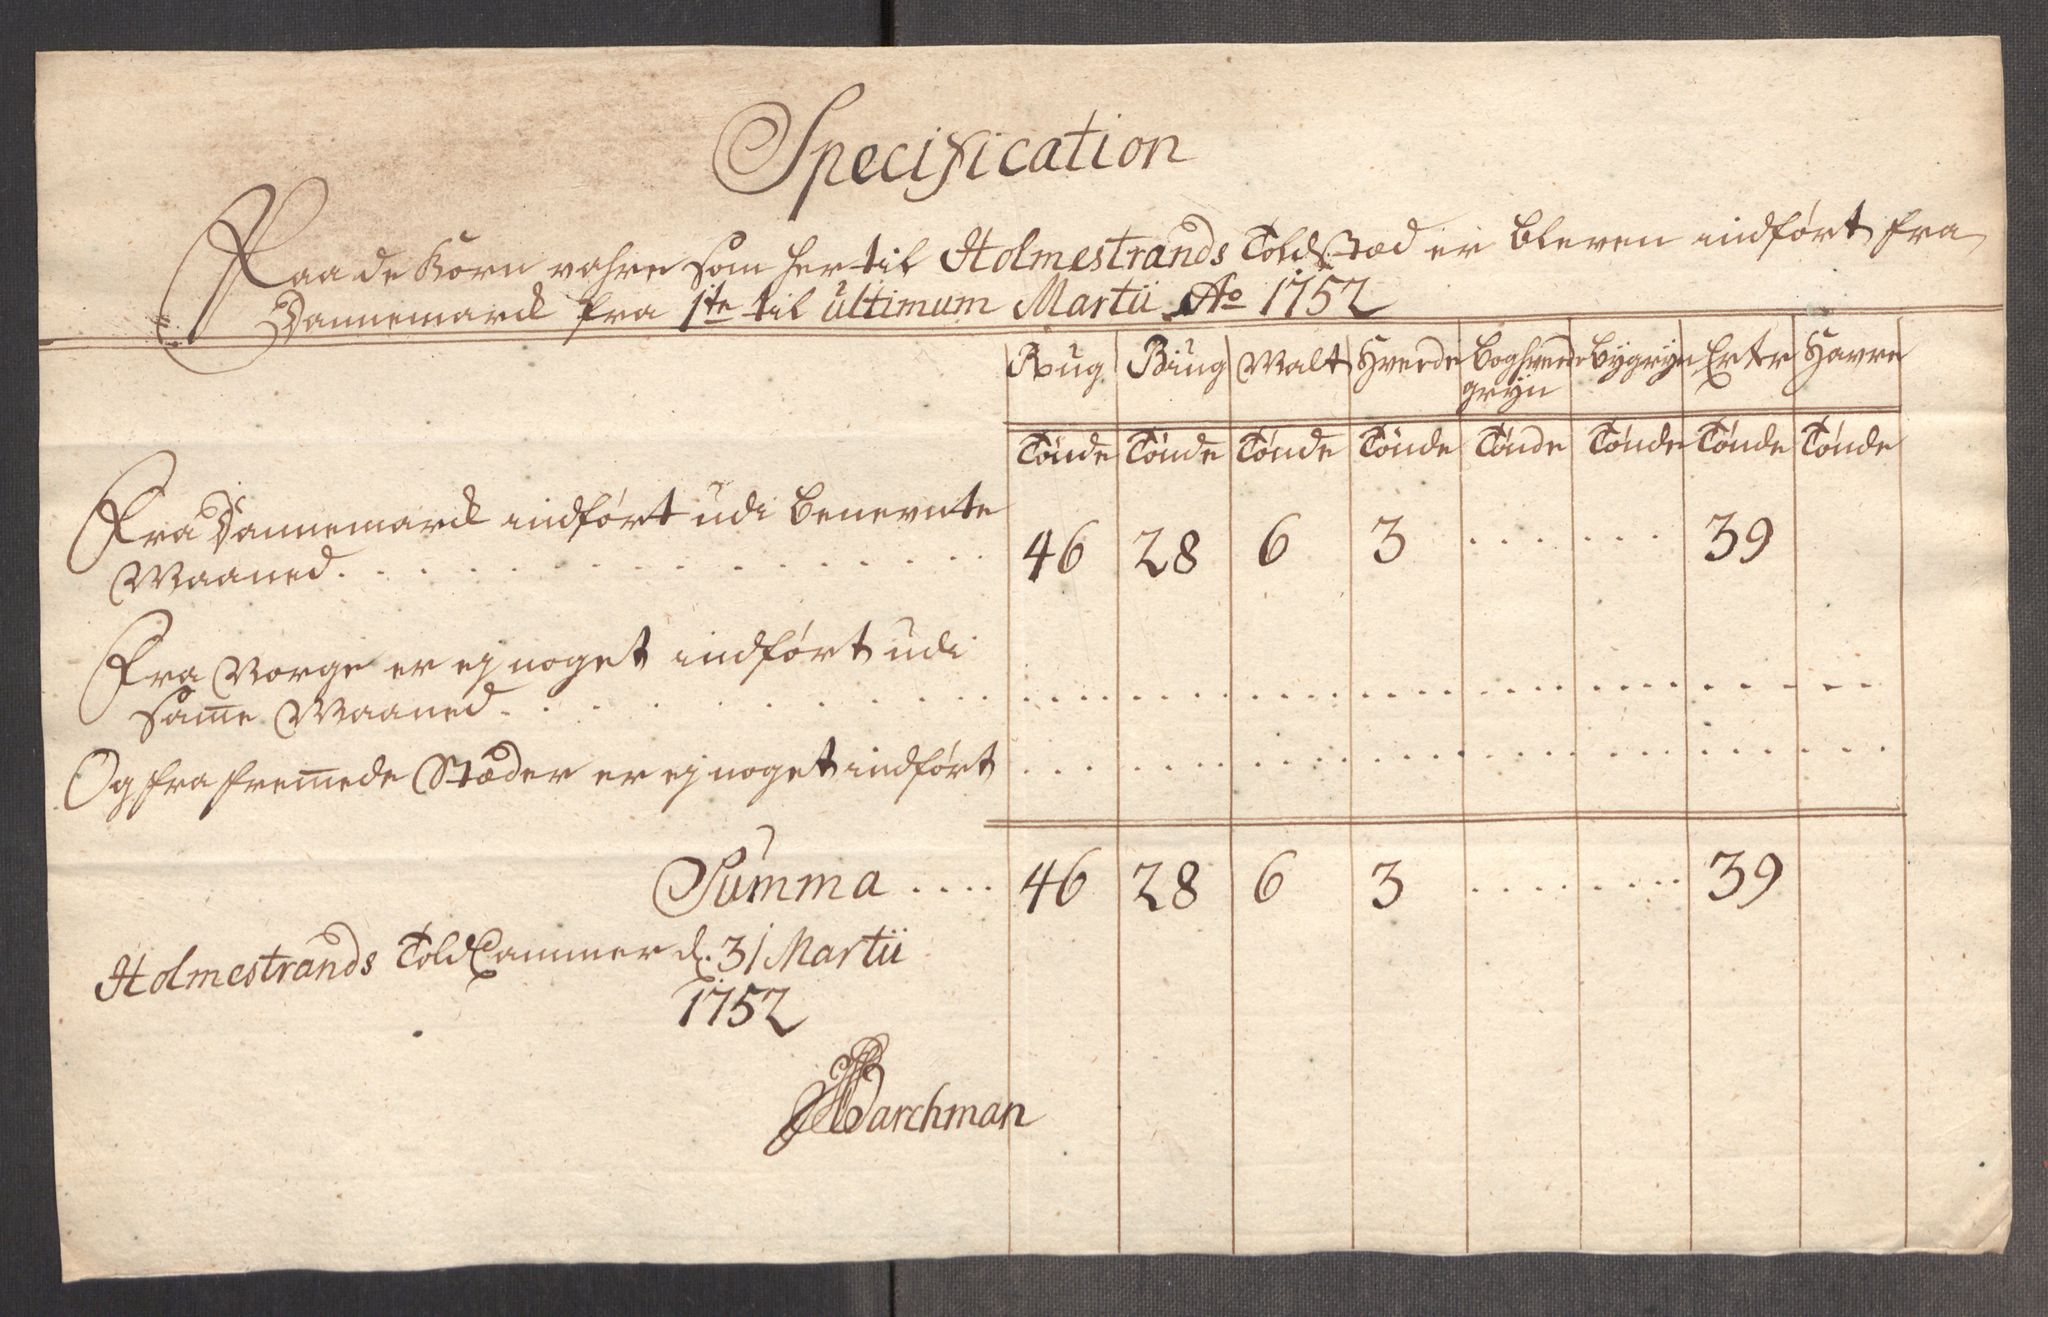 Specification
Paa de Korn vahre som her til Holmestrands Toldstæd er bleven indført fra
Dannemarck fra 1te til ultimum Martii Ao 1752
Rug Biug Malt Hvede Boghvede Bygryn Erter Havre
gryn
Tønde Tønde Tønde Tønde Tønde Tønde Tønde Tønde
Fra Dannemarck indført udi benevnte
Maaned. . . . . . . . . . . . . . . . 46 28 6 3 . . . . . . . 39
Fra Norge er ej noget indført udi
samme Maaned. . . . . . . . . . . .
Og fra fremmede Stæder er ej noget indført . . . .
Summa .... 46 28 6 3 . . . . . . . . 39
Holmestrands Told Cammer d. 31 Martii
1752
Barchman